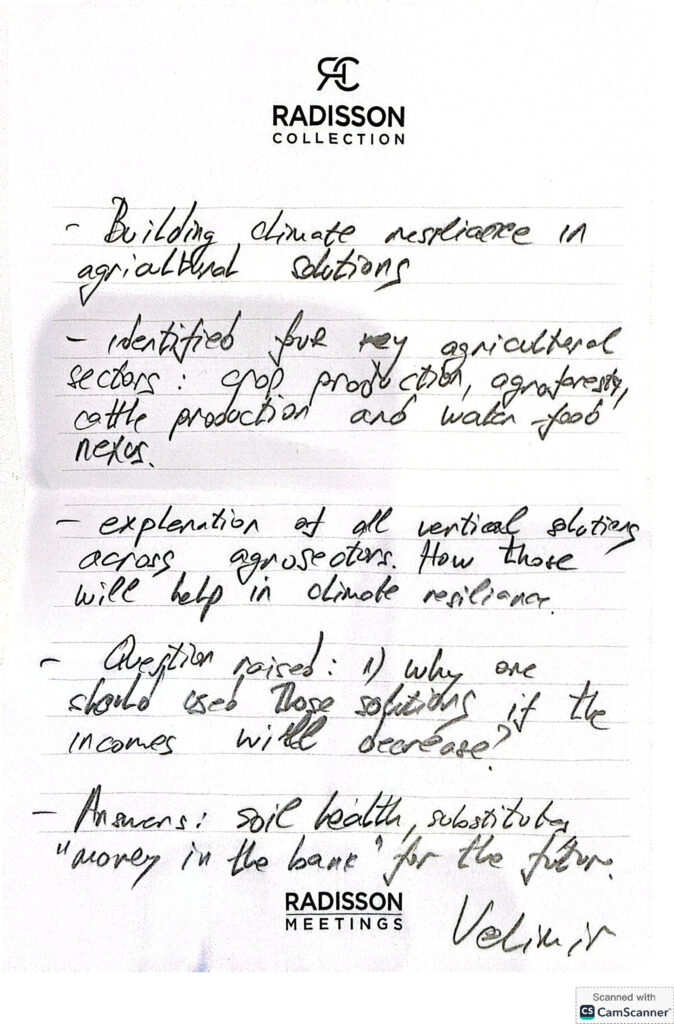 RADISSON
COLLECTION
- Building climate respliaece in
agricultural solutions
- identified four key agricultural
sectors: crop production, agroforesty,
cattle production and water-food
nexus.
- explenation of all vertical solutions
across agrosectors. How those
will help in climate resiliance.
- Question raised: 1) why one
should used those solutions if the
incomes will decrease?
- Answers: soil health, substitutes,
"money in the bank" for the future.
RADISSON
MEETINGS
Velimir
Scanned with
CS CamScanner